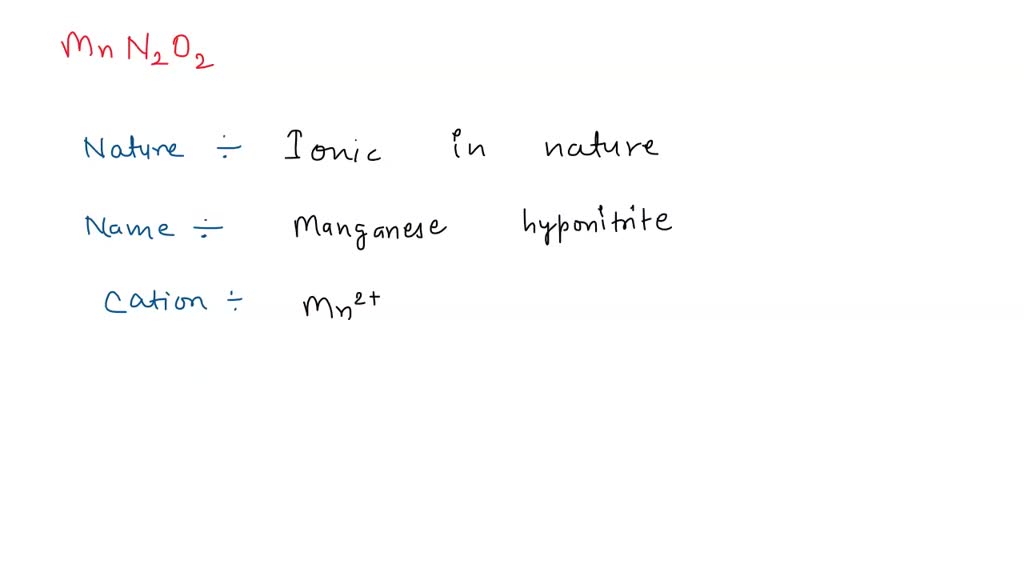 Mn N₂O₂
Nature ÷ Ionic in nature
Name ÷ Manganese hyponitrite
Cation ÷ Mn²⁺